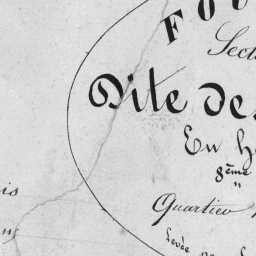 FOU
Sect
Dite de
En H
8ème
"
Quartier
levée
is